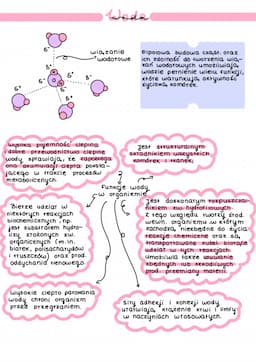 Woda
wiązanie
wodorowe
δ⁻
δ⁺
Dipolowa budowa cząst. oraz
ich zdolność do tworzenia wią-
zań wodorowych umożliwiają
wodzie pełnienie wielu funkcji,
które warunkują aktywność
życiową komórek.
Wysoka pojemność cieplna
dobre przewodnictwo cieplne
wody sprawiają, że zapobiega
ona akumulacji ciepła powsta-
jącego w trakcie procesów
metabolicznych.
Jest strukturalnym
składnikiem wszystkich
komórek i tkanek.
Funkcje wody
w organizmie
Bierze udział w
niektórych reakcjach
biochemicznych, np.
jest substratem hydro-
lizy złożonych zw.
organicznych (m.in.
białek, polisacharydów
i tłuszczów) oraz prod.
oddychania tlenowego.
Jest doskonałym rozpuszczal-
nikiem zw. hydrofilowych.
Z tego względu tworzy środ.
wewn. organizmu w którym
zachodzą, niezbędne do życia
reakcje chemiczne oraz są
transportowane subst. biorące
udział w tych reakcjach.
Umożliwia także usuwanie
zbędnych lub szkodliwych
prod. przemiany materii.
Wysokie ciepło parowania
wody chroni organizm
przed przegrzaniem.
Siły adhezji i kohezji wody
ułatwiają, krążenie krwi i limfy
w naczyniach włosowatych.